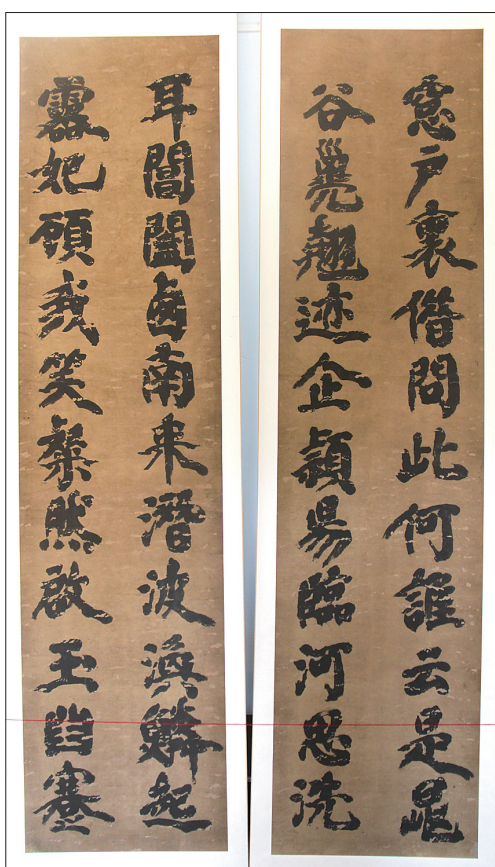 窓户裏借問此何誰云是鬼
谷翹迹企頴昜臨河思洗
耳閶闔卥南来潛波渙鱗起
靈妃顧我笑粲然啟玉齒蹇